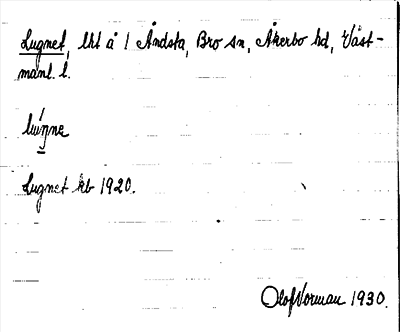 Lugnet, lht å 1 Åndsta, Bro sn, Åkerbo hd, Väst-
manl. l.
Lugnet kb 1920.
Olof Vorman 1930.